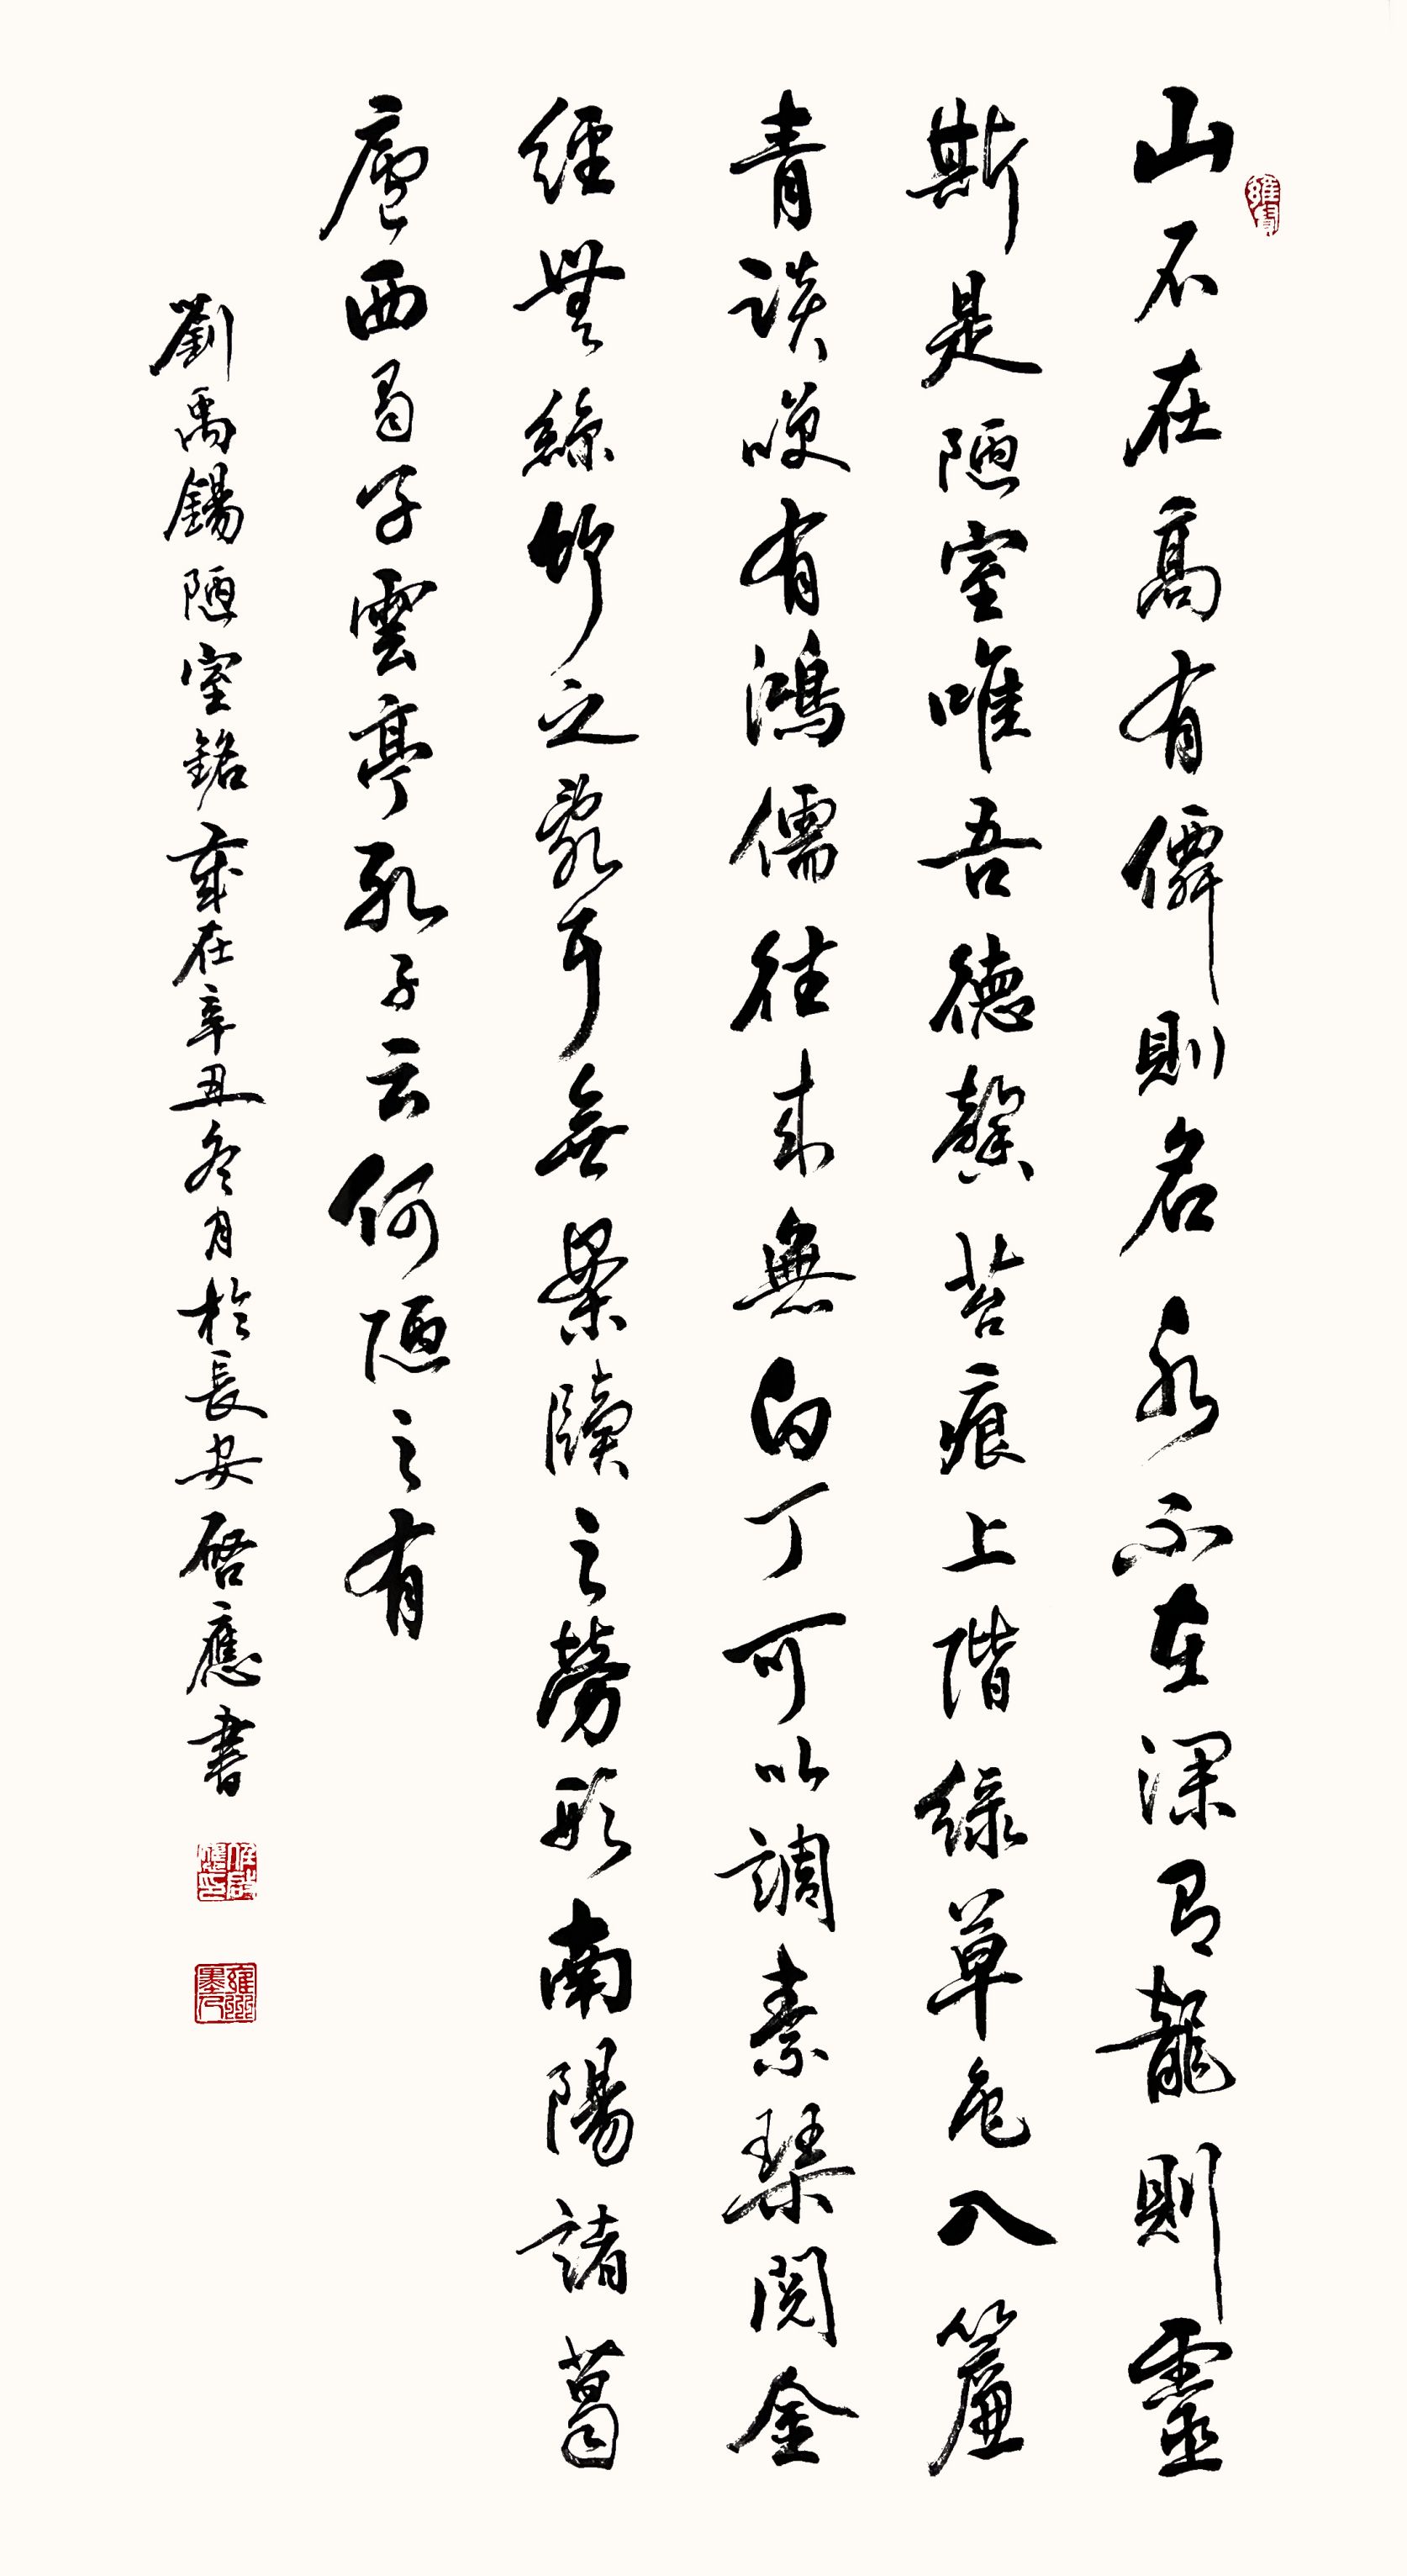 山不在高有僊則名水不在深有龍則靈
斯是陋室唯吾德馨苔痕上階綠草色入簾
青談咲有鴻儒往来無白丁可以調素琴閱金
經無絲竹之亂耳無案牘之勞形南陽諸葛
廬西蜀子雲亭孔子云何陋之有
劉禹錫陋室銘歲在辛丑冬月於長安啓應書